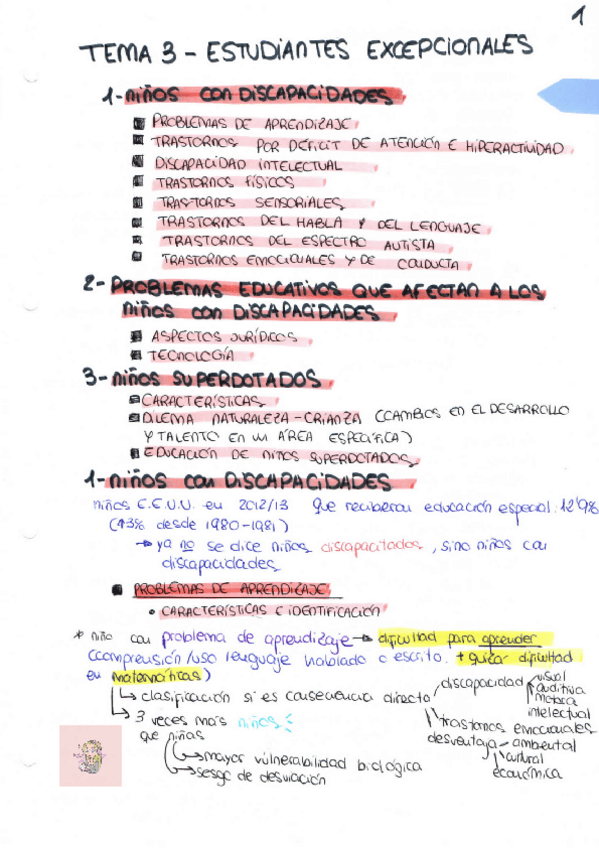 1
TEMA 3 - ESTUDIANTES EXCEPCIONALES
1- niños con DISCAPACIDADES
PROBLEMAS DE APRENDIZAJE
TRASTORNOS POR DÉFICIT DE ATENCIÓN E HIPERACTIVIDAD
DISCAPACIDAD INTELECTUAL
TRASTORNOS FÍSICOS
TRASTORNOS SENSORIALES
TRASTORNOS DEL HABLA Y DEL LENGUAJE
TRASTORNOS DEL ESPECTRO AUTISTA
TRASTORNOS EMOCIONALES Y DE CONDUCTA
2- PROBLEMAS EDUCATIVOS QUE AFECTAN A LOS
niños con DISCAPACIDADES
ASPECTOS JURÍDICOS
TECNOLOGÍA
3- niños SUPERDOTADOS
CARACTERÍSTICAS
DILEMA NATURALEZA-CRIANZA (CAMBIOS EN EL DESARROLLO
Y TALENTO EN UN ÁREA ESPECÍFICA)
EDUCACIÓN DE NIÑOS SUPERDOTADOS
1- niños con DISCAPACIDADES
niños E.E.U.U. en 2012/13 que recibieron educación especial: 12'9%
(↑3% desde 1980-1981)
→ ya no se dice niños discapacitados, sino niños con
discapacidades
PROBLEMAS DE APRENDIZAJE
• CARACTERÍSTICAS E IDENTIFICACIÓN
* niño con problema de aprendizaje → dificultad para aprender
(comprensión/uso lenguaje hablado o escrito. + quizá dificultad
en matemáticas)
↳ clasificación si es consecuencia directa
discapacidad
visual
auditiva
motora
intelectual
trastornos emocionales
desventaja - ambiental
cultural
económica
↳ 3 veces más niños
que niñas
↳ mayor vulnerabilidad biológica
↳ sesgo de desviación